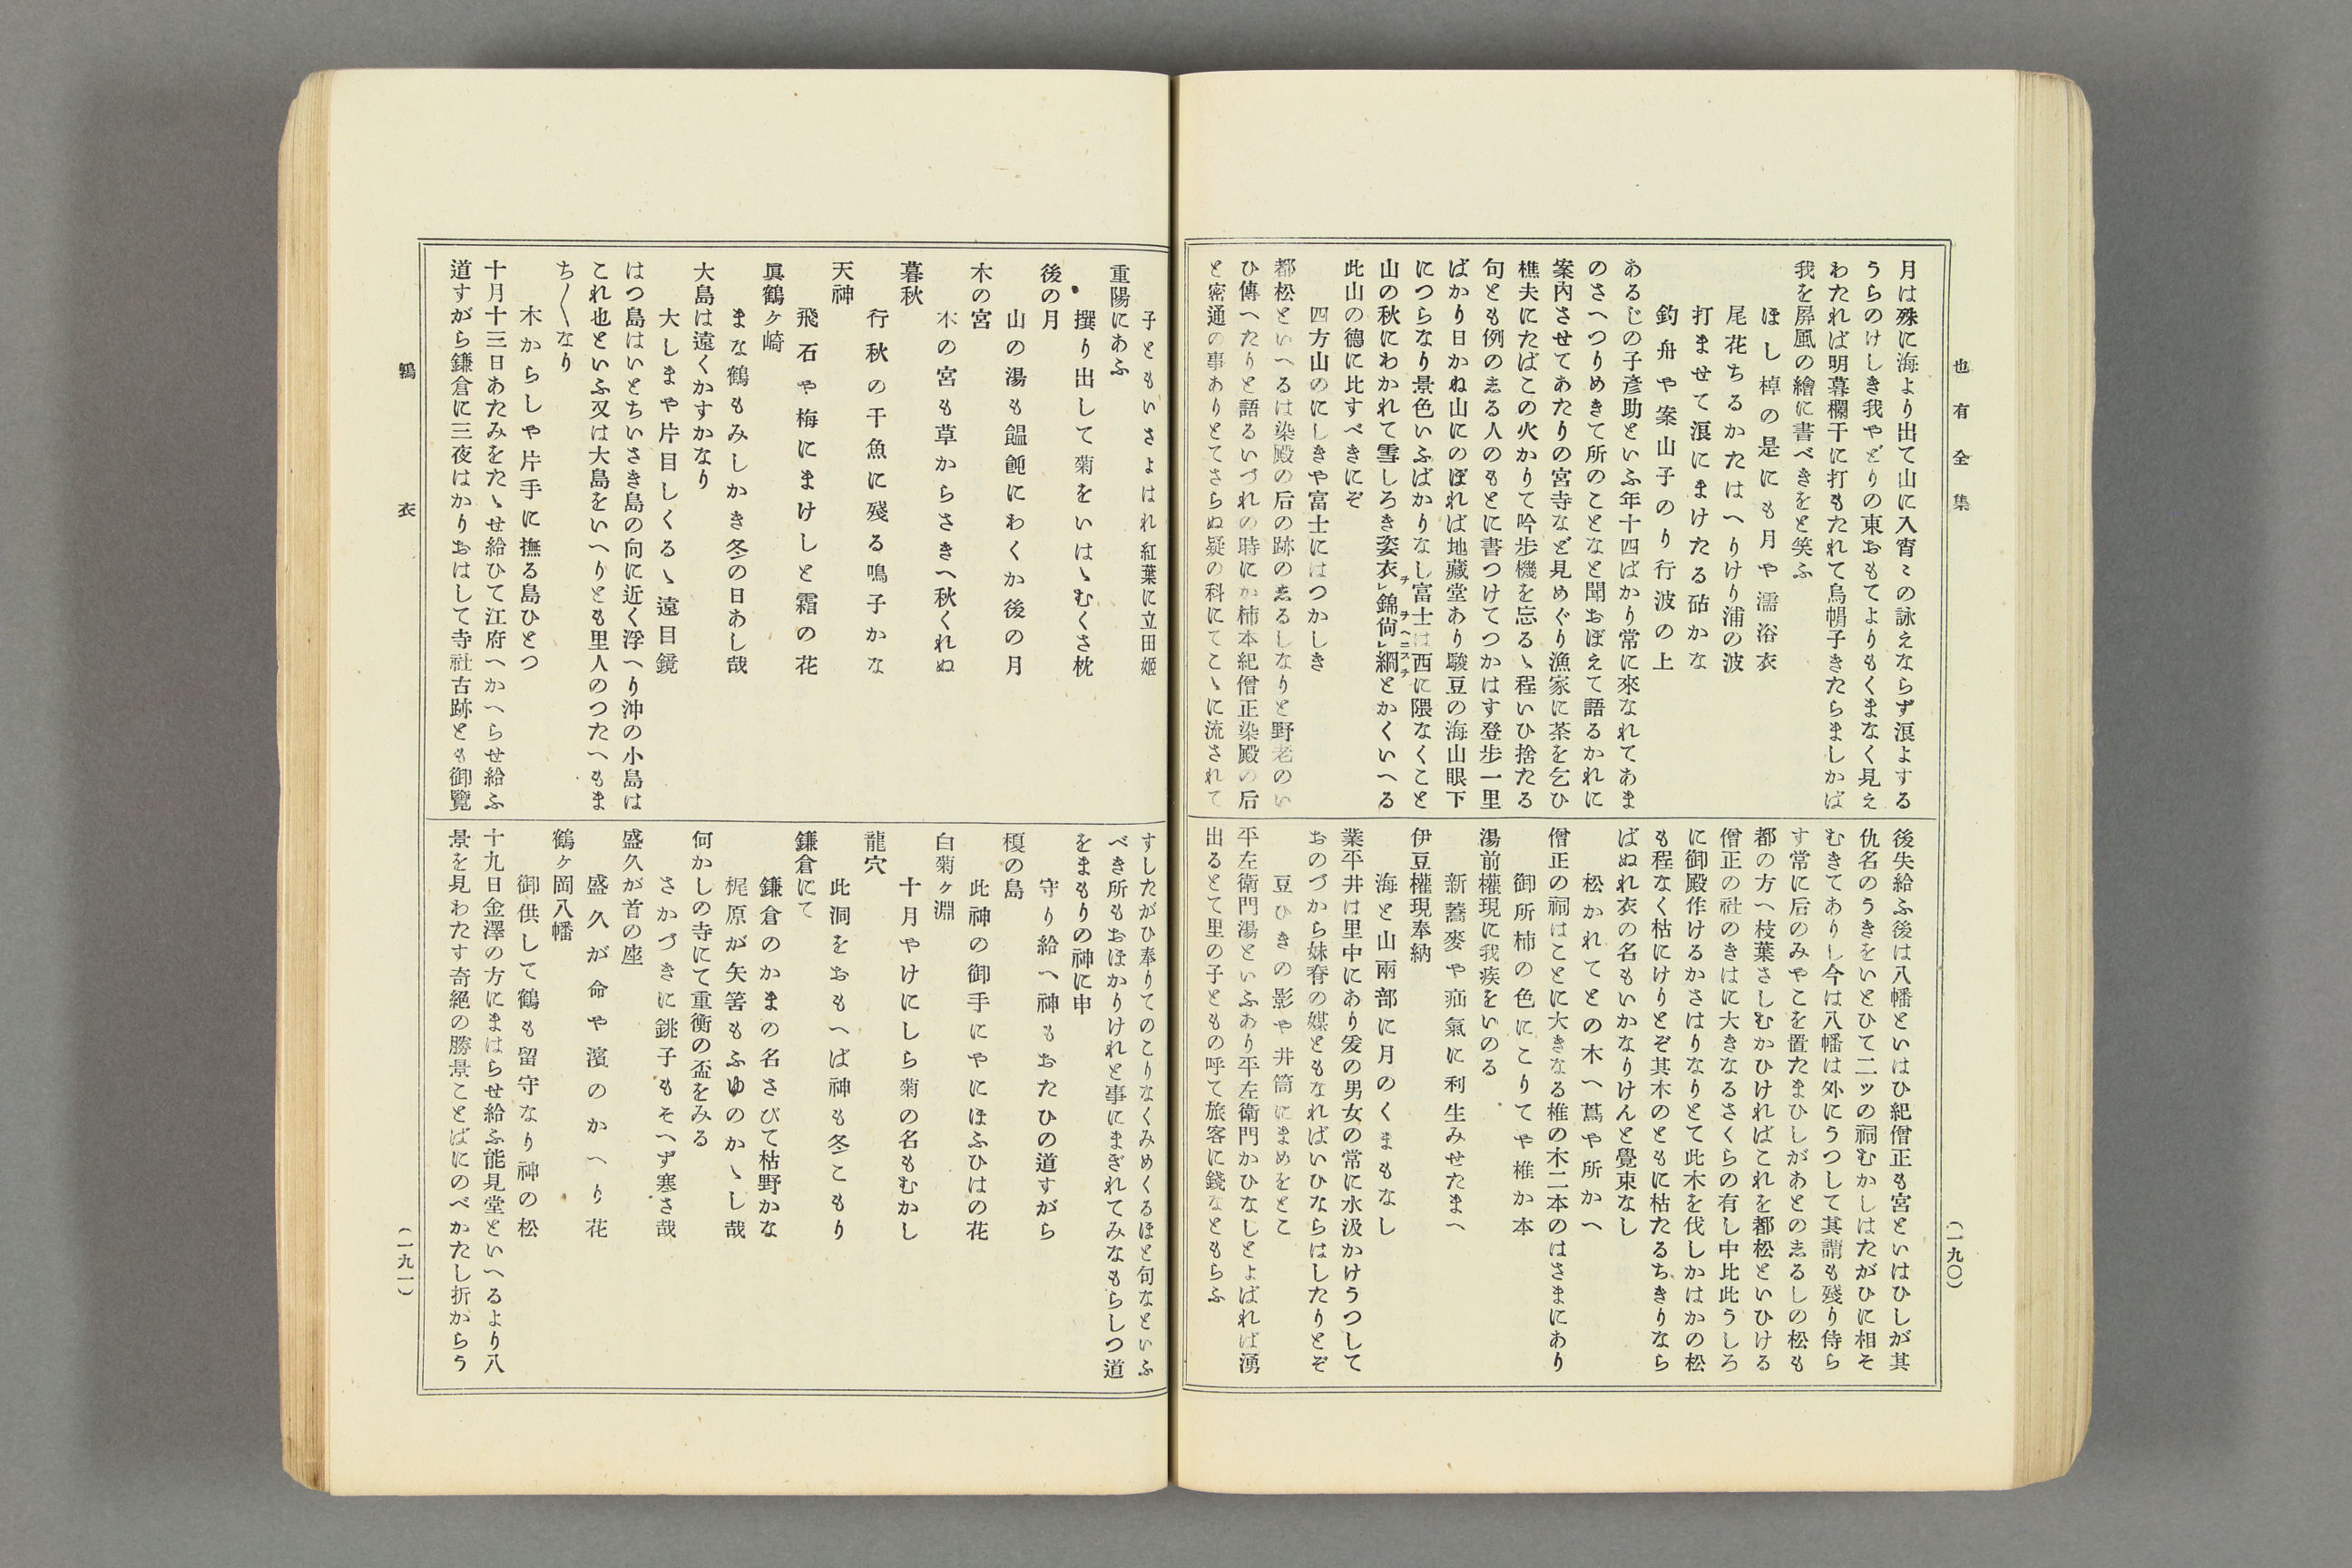 也有全集
(一九〇)
月は殊に海より出て山に入宵〻の詠えならず浪よする
うらのけしき我やどりの東おもてよりもくまなく見え
わたれば明暮欄干に打もたれて烏帽子きたらましかば
我を屏風の繪に書べきをと笑ふ
ほし棹の是にも月や濡浴衣
尾花ちるかたはへりけり浦の波
打ませて浪にまけたる砧かな
釣舟や案山子のり行波の上
あるじの子彦助といふ年十四ばかり常に來なれてあま
のさへつりめきて所のことなと聞おぼえて語るかれに
案内させてあたりの宮寺など見めぐり漁家に茶を乞ひ
樵夫にたばこの火かりて吟歩機を忘るゝ程いひ捨たる
句とも例のゑる人のもとに書つけてつかはす登歩一里
ばかり日かね山にのぼれば地藏堂あり駿豆の海山眼下
につらなり景色いふばかりなし富士は西に隈なくこと
山の秋にわかれて雪しろき姿衣レ錦尙レ綱とかくいへる
此山の德に比すべきにぞ
四方山のにしきや富士にはつかしき
都松といへるは染殿の后の跡のゑるしなりと野老のい
ひ傳へたりと語るいづれの時にか柿本紀僧正染殿の后
と密通の事ありとてさらぬ疑の科にてこゝに流されて
後失給ふ後は八幡といはひ紀僧正も宮といはひしが其
仇名のうきをいとひて二ッの祠むかしはたがひに相そ
むきてありし今は八幡は外にうつして其謂も殘り侍ら
す常に后のみやこを置たまひしがあとのゑるしの松も
都の方へ枝葉さしむかひければこれを都松といひける
僧正の社のきはに大きなるさくらの有し中比此うしろ
に御殿作けるかさはりなりとて此木を伐しかはかの松
も程なく枯にけりとぞ其木のともに枯たるちきりなら
ばぬれ衣の名もいかなりけんと覺束なし
松かれてとの木へ蔦や所かへ
僧正の祠はことに大きなる椎の木二本のはさまにあり
御所柿の色にこりてや椎か本
湯前權現に我疾をいのる
新蕎麥や疝氣に利生みせたまへ
伊豆權現奉納
海と山兩部に月のくまもなし
業平井は里中にあり爰の男女の常に水汲かけうつして
おのづから妹脊の媒ともなればいひならはしたりとぞ
豆ひきの影や井筒にまめをとこ
平左衛門湯といふあり平左衛門かひなしとよばれば湧
出るとて里の子ともの呼て旅客に錢なともらふ
子ともいさよはれ紅葉に立田姬
重陽にあふ
撰り出して菊をいはゝむくさ枕
後の月
山の湯も饂飩にわくか後の月
木の宮
木の宮も草からさきへ秋くれぬ
暮秋
行秋の干魚に殘る鳴子かな
天神
飛石や梅にまけしと霜の花
眞鶴ヶ崎
まな鶴もみしかき冬の日あし哉
大島は遠くかすかなり
大しまや片目しくるゝ遠目鏡
はつ島はいとちいさき島の向に近く浮へり沖の小島は
これ也といふ又は大島をいへりとも里人のつたへもま
ち〳〵なり
木からしや片手に撫る島ひとつ
十月十三日あたみをたゝせ給ひて江府へかへらせ給ふ
道すがら鎌倉に三夜はかりおはして寺社古跡とも御覽
すしたがひ奉りてのこりなくみめくるほと句なといふ
べき所もおほかりけれと事にまぎれてみなもらしつ道
をまもりの神に申
守り給へ神もおたひの道すがら
榎の島
此神の御手にやにほふひはの花
白菊ヶ淵
十月やけにしら菊の名もむかし
龍穴
此洞をおもへば神も冬こもり
鎌倉にて
鎌倉のかまの名さびて枯野かな
梶原が矢筈もふゆのかゝし哉
何かしの寺にて重衡の盃をみる
さかづきに銚子もそへず寒さ哉
盛久が首の座
盛久が命や濱のかへり花
鶴ヶ岡八幡
御供して鶴も留守なり神の松
十九日金澤の方にまはらせ給ふ能見堂といへるより八
景を見わたす奇絕の勝景ことばにのべかたし折からう
鶉衣
(一九一)